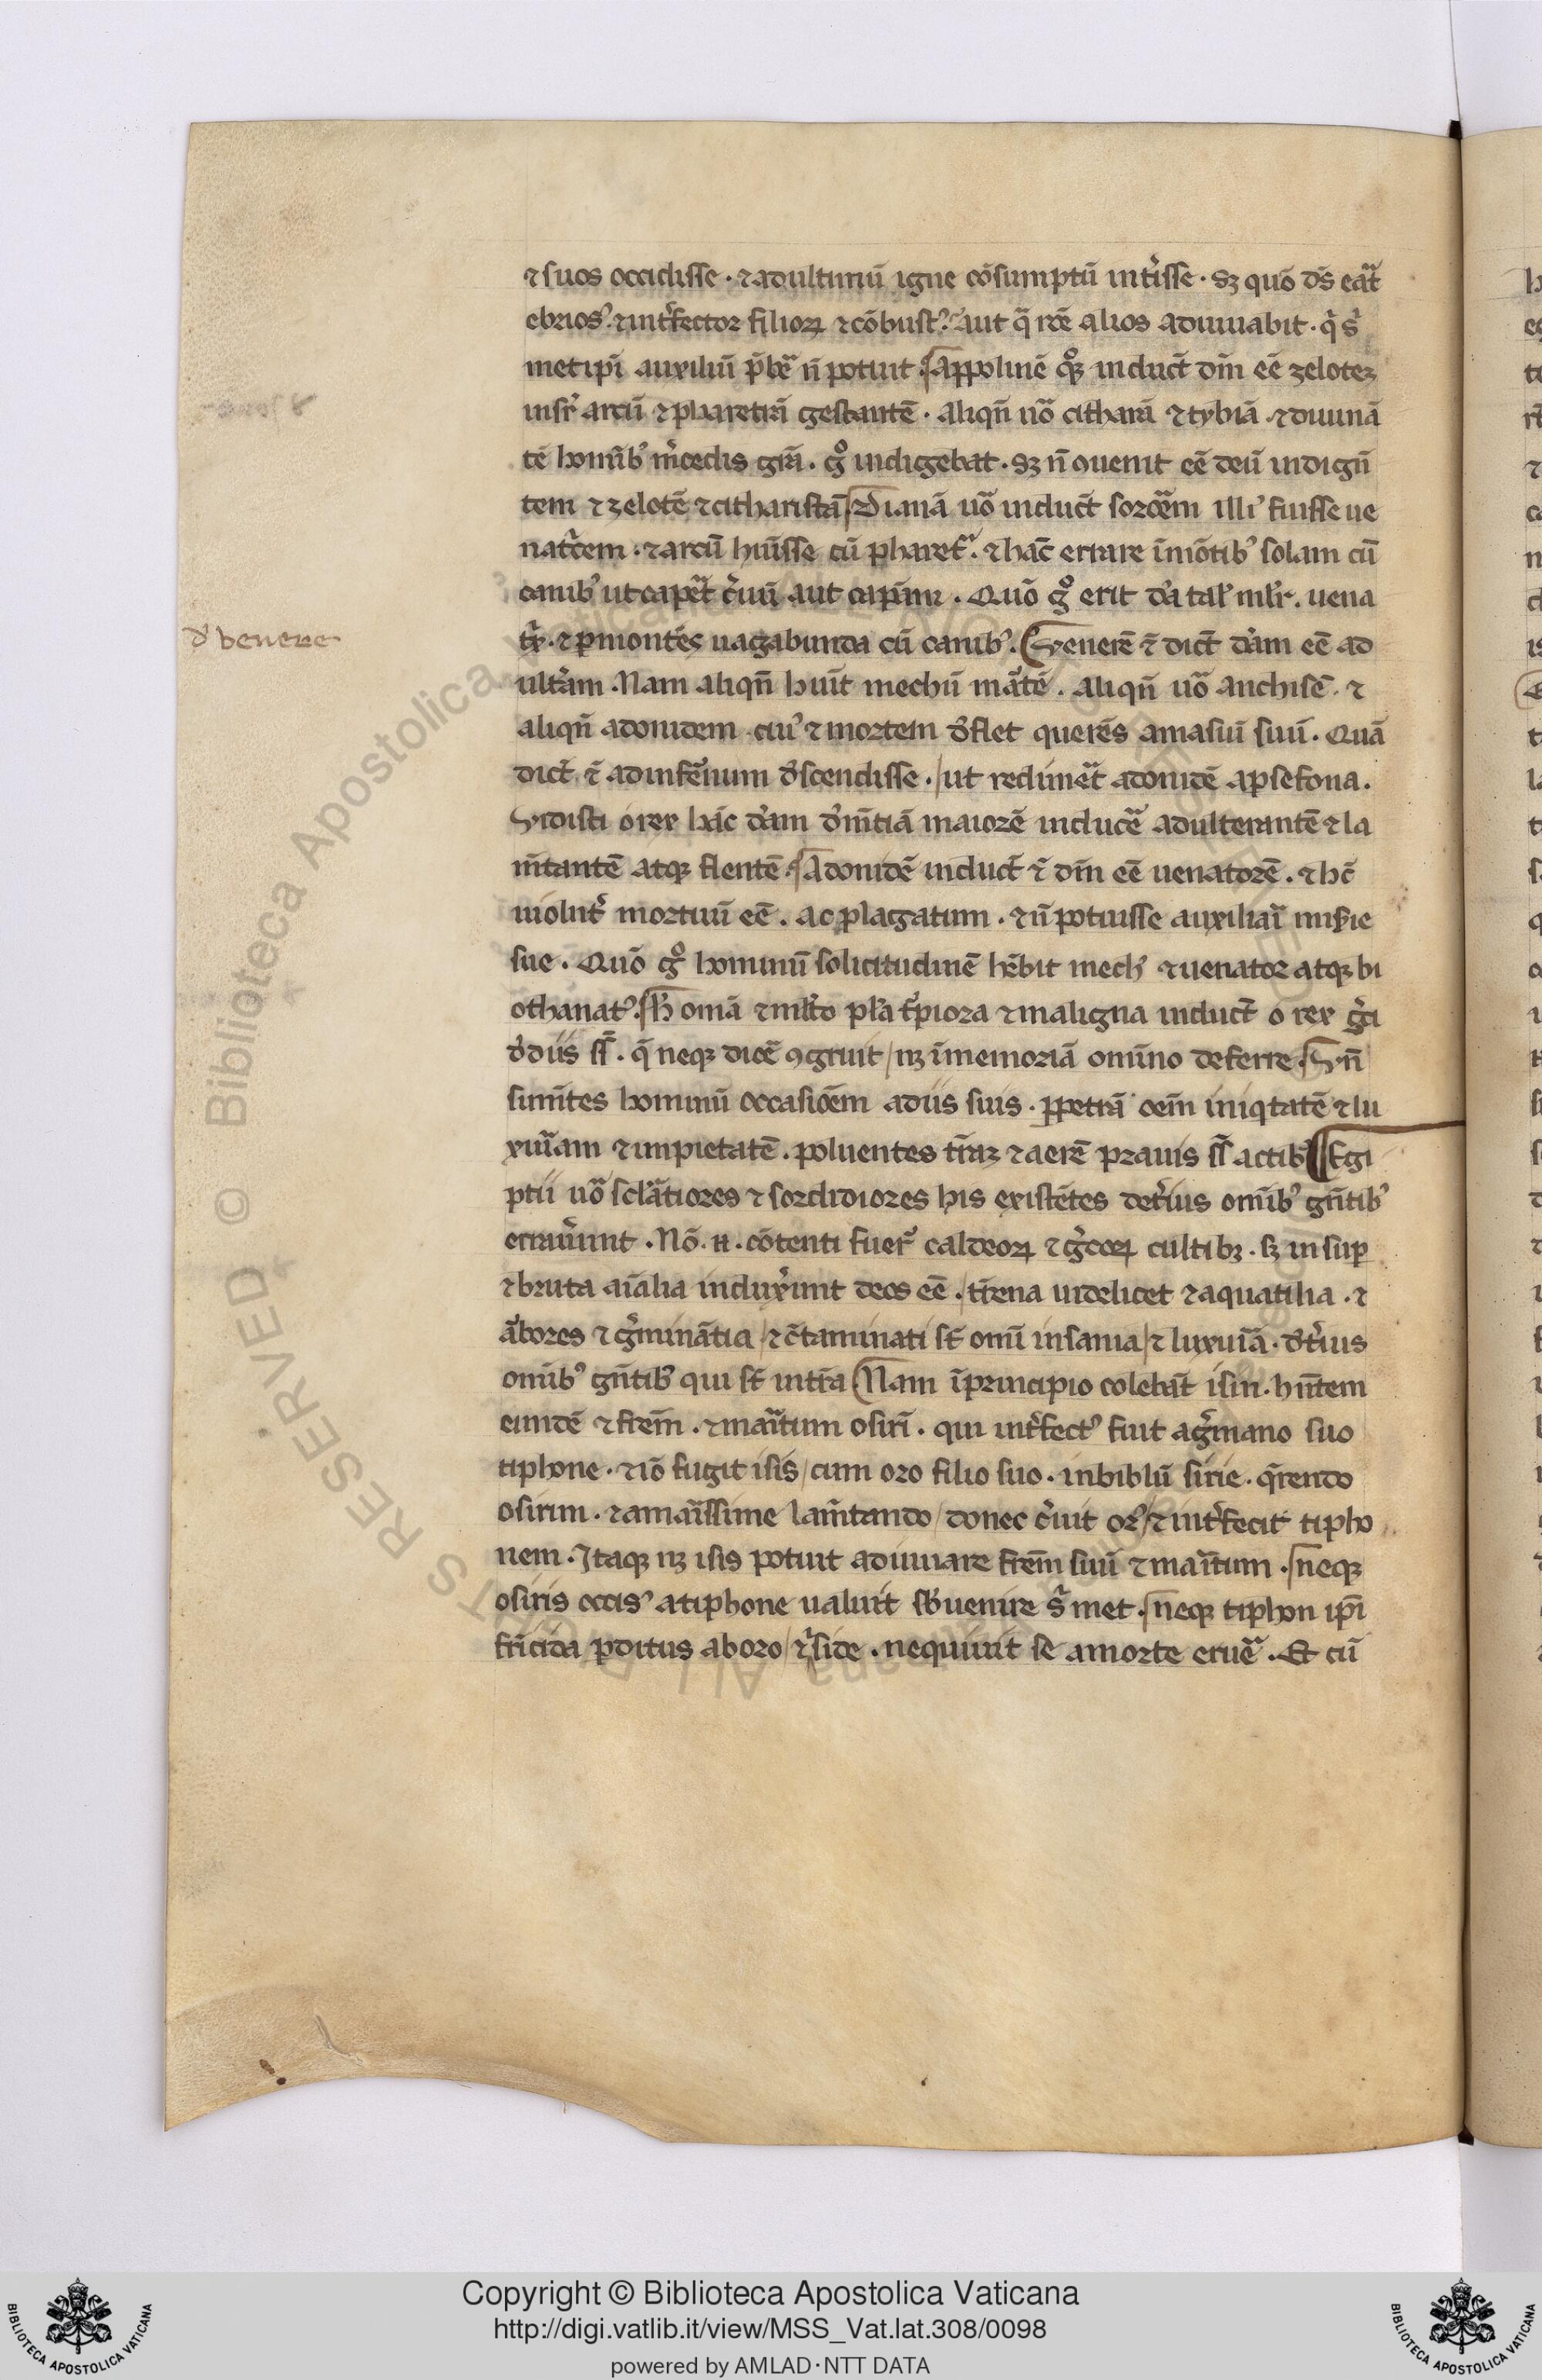 ⁊ suos occidisse · ⁊ adulturiū igne cōsumptū int'isse · sꝫ quō ds̄ eāt
ebrios'. ⁊ int'fector filioꝝ ⁊ cōbust'. aut q̄ rōe alios adiuuabit · q̄ s'
metip̄i auxiliū p̄be' n̄ potuit · Appolinē qꝫ inducūt dm̄ eē zelotez
insr̄ arcū ⁊ pharetrā gestantē · aliqn̄ uō citharā ⁊ tybiā ⁊ diuinā
tē homīb' m'cedis grā · g° indigebat · sꝫ n̄ ꝯuenit eē deū indigē
tem ⁊ zelotē ⁊ citharistā Dianā uō inducūt sorōem illi' fuisse ue
nat'cem · ⁊ arcū hūisse cū pharet'. ⁊ hāc errare ī mōtib' solam cū
canib' ut capet c'uū aut capūm · Quō g° erit d'a tal' mlr̄. uena
t'x · ⁊ p montes uagabunda cū canib'. Venerē ⁊ dicūt d'am eē ad
d' venere
ult'am · Nam aliqn̄ huit mechū m'tē · aliqn̄ uō anchisē · ⁊
aliqn̄ adonidem cui' ⁊ mortem d'flet querēs amasiū suū · Quā
dicūt ⁊ ad infēnum d'scendisse · / ut redimet adonidē a psefona ·
Vidisti o rex hāc d'am d'mītiā maiorē inducē adulterantē ⁊ la
m̄tantē atqꝫ flentē · Adonidē inducūt ⁊ dm̄ eē uenatorē · ⁊ hc̄
uiolent' mortuū eē · ac plagatum · ⁊ n̄ potuisse auxiliari mis'ie
sue · Quō g° hominū solicitudinē hēbit mech' ⁊ uenator atqꝫ bi
othanat'. Hec omīa ⁊ mlto pl'a t'piora ⁊ maligna inducūt o rex g'ci
d' diis s̄ · q̄ neqꝫ dicē ꝯgruit / nꝫ ī memoriā omīno deferre · Vn̄
sumētes hominū occasiōem a diis suis · ꝑpetrā oēm iniqtatē ⁊ lu
xuīam ⁊ impietatē · poluentes t'rāꝫ ⁊ aerē prauis s̄ actib' Egi
ptii uō scl'atiores ⁊ sordidiores his existētes det'ius omīb' gn̄tib'
errau'unt · Nō · n̄ · cōtenti fuer' caldeoꝝ ⁊ g'coꝝ cultibꝫ · sꝫ insuꝑ
⁊ bruta aīalia indux'unt deos eē · / t'rena uidelicet ⁊ aquatilia · ⁊
a'bores ⁊ g'minātia / ⁊ c̄taminati st̄ omī insania / ⁊ luxuīa · d't'ius
omīb' gn̄tib' qui st̄ in t'ra Nam ī principio colebāt isin · hn̄tem
eundē ⁊ frēm · ⁊ maritum osirī · qui int'fect' fuit a g'mano suo
tiphone · ⁊ iō fugit isis / cum oro filio suo · in biblū sirie · q̄rendo
osirim · ⁊ amarissime lam̄tando / donec c'uit or' / ⁊ int'fecit tipho
nem · Itaqꝫ nꝫ isis potuit adiuuare frēm suū ⁊ maritum · neqꝫ
osiris occis' a tiphone ualuit sb'uenire s' met · neqꝫ tiphon ip̄i
fr̄icida ꝑditus ab oro / ⁊ iside · nequiuit se a morte eruē · Et cū
Copyright © Biblioteca Apostolica Vaticana
http://digi.vatlib.it/view/MSS_Vat.lat.308/0098
powered by AMLAD·NTT DATA